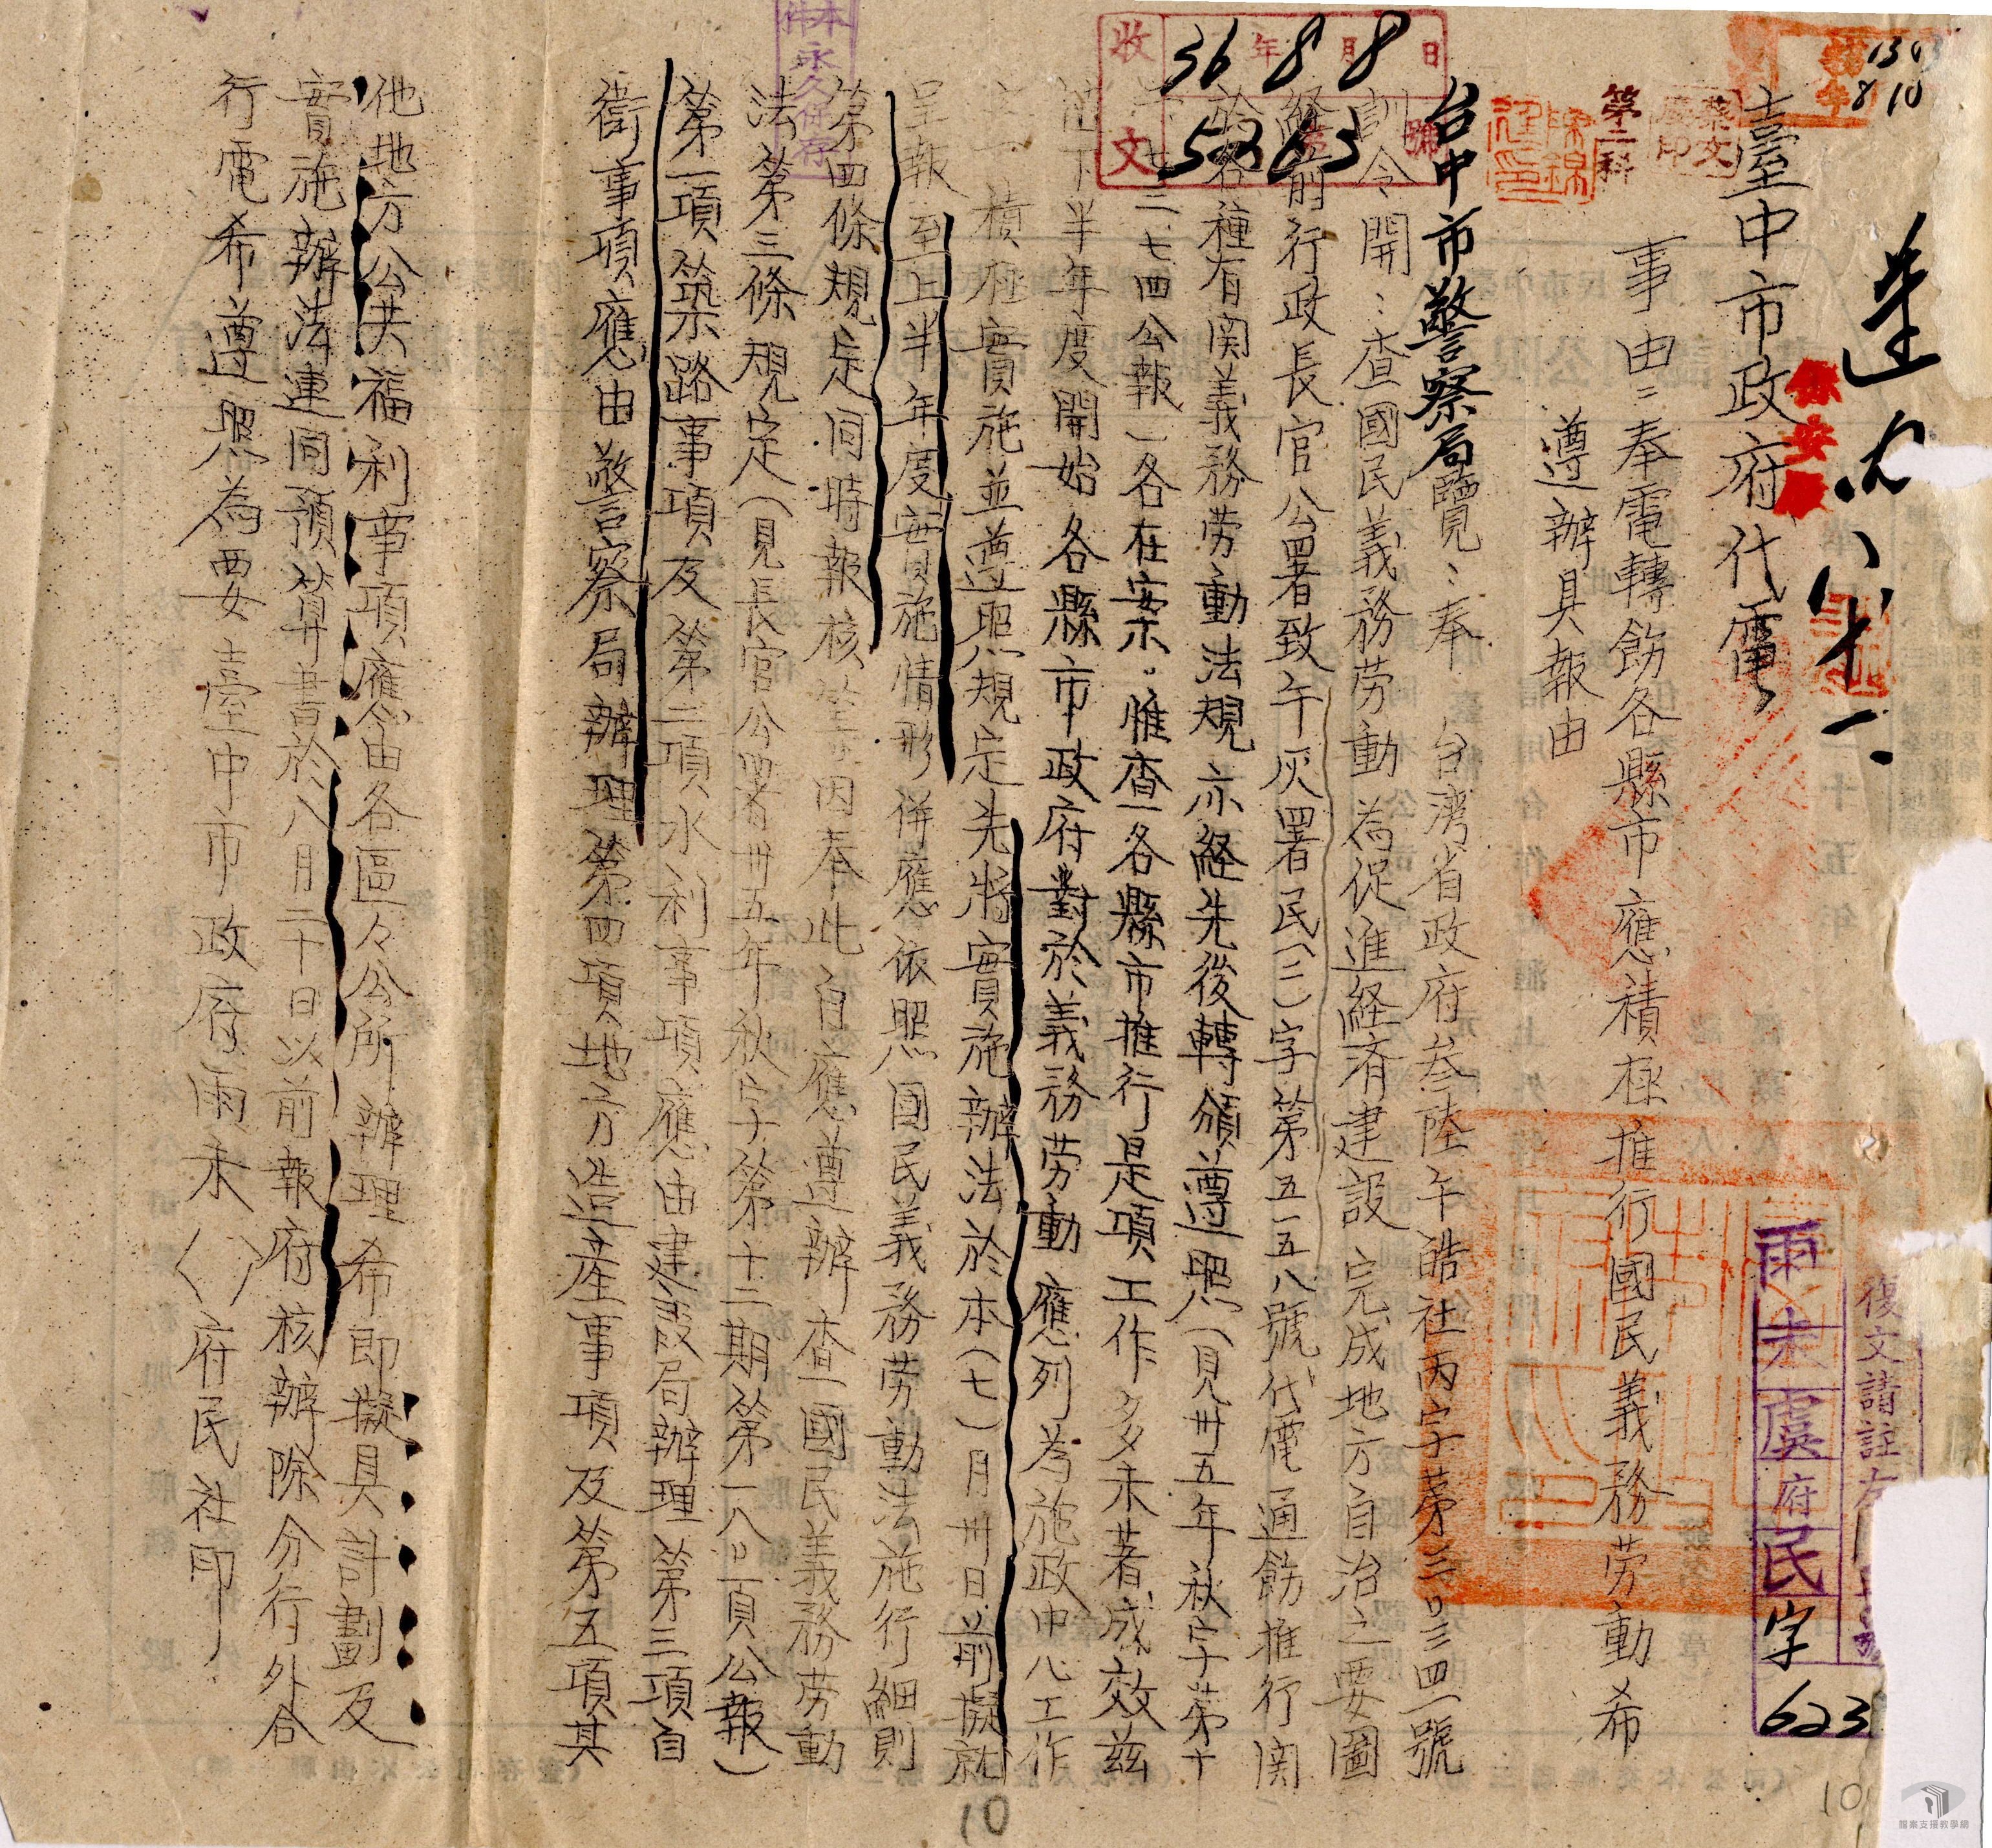 臺中市政府代電
事由：奉電轉飭各縣市應積極推行國民義務劳動希
遵辦具報由
台中市警察局覽：奉 台湾省政府叁陸午皓社丙字第三〇三四一號
訓令開：查國民義務劳動為促進経済建設完成地方自治之要圖
経前行政長官公署致午灰署民(二)字第五一五八號代電通飭推行関
於各種有関義務劳動法規亦経先後轉頒遵照(見卅五年秋字第十
二七四公報)各在案。惟查各縣市推行是項工作多未著成效茲
值下半年度開始各縣市政府對於義務劳動應列為施政中心工作
積極實施並遵照規定先將實施辦法於本(七)月卅日前擬就
呈報至上半年度實施情形併應依照國民義務劳動法施行細則
第四條規定同時報核等因奉此自應遵辦查國民義務劳動
法第三條規定(見長官公署卅五年秋字第十二期第一八〇頁公報)
第一項築路事項及第二項水利事項應由建設局辦理第三項自
衛事項應由警察局辦理第四項地方造產事項及第五項其
他地方公共福利事項應由各區々公所辦理希即擬具計劃及
實施辦法連同預算書於八月二十日以前報府核辦除分行外合
行電希遵照為要臺中市政府雨未( )府民社印
收文 36年8月8日
5263號
第二科
蔡文
保安
本件永久保存
復文請註左
雨未虞府民字
623
1303
8 10
10
10
檔案支援教學網